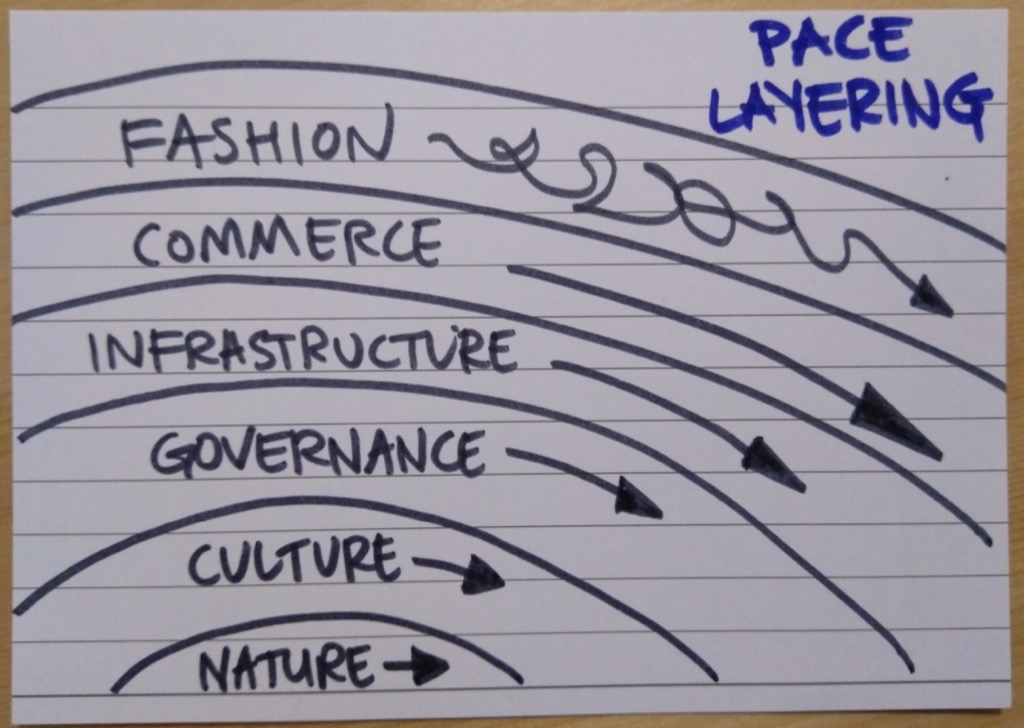 PACE
LAYERING
FASHION
COMMERCE
INFRASTRUCTURE
GOVERNANCE
CULTURE
NATURE